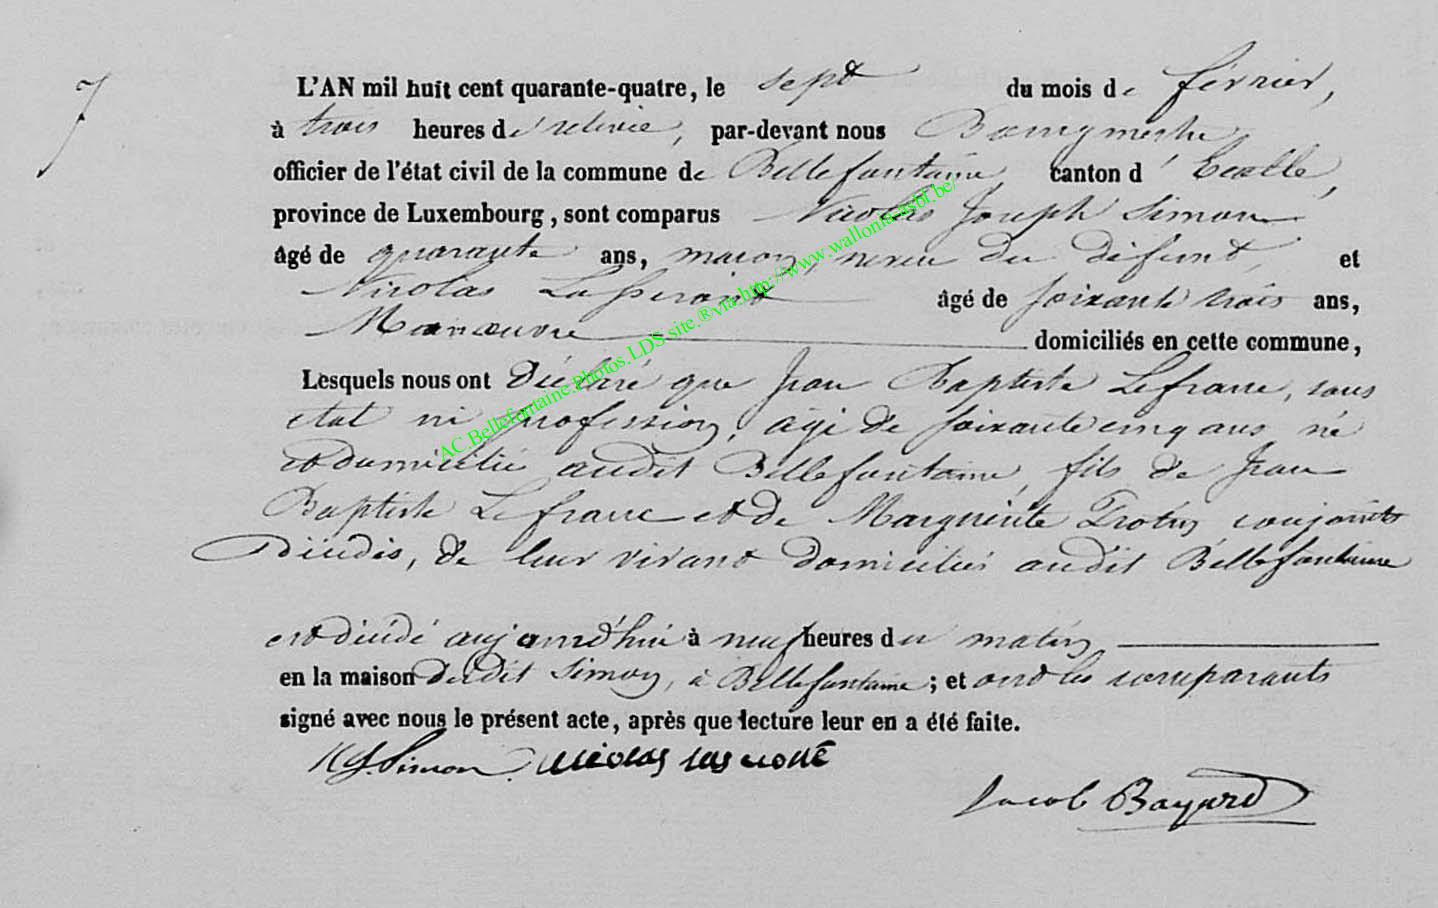 7
L'AN mil huit cent quarante-quatre, le sept du mois de février,
à trois heures de relevée, par-devant nous Bourgmestre
officier de l'état civil de la commune de Bellefontaine canton d'Etalle,
province de Luxembourg, sont comparus Nicolas Joseph Simon
âgé de quarante ans, maçon, neveu du défunt, et
Nicolas âgé de soixante trois ans,
Manœuvre domiciliés en cette commune,
Lesquels nous ont Déclaré que Jean Baptiste Lefranc, sans
etat ni profession, âgé de soixante cinq ans né
et domicilié audit Bellefontaine, fils de Jean
Baptiste Lefranc et de Marguerite conjoints
Décédés, de leur vivant domiciliés audit Bellefontaine
est décédé aujourd'hui à neuf heures du matin
en la maison dudit Simon, à Bellefontaine ; et ont les comparants
signé avec nous le présent acte, après que lecture leur en a été faite.
NJ. Simon. nicolas
Jacob Bayard
AC.Bellefontaine.Photos.LDS site.®via.http://www.wallonia-asbl.be/